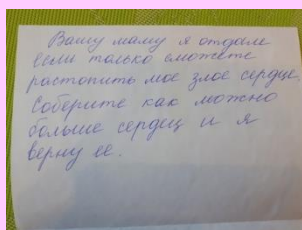 Вашу маму я отдам
если только сможете
растопить мое злое сердце.
Соберите как можно
больше сердец и я
верну ее.